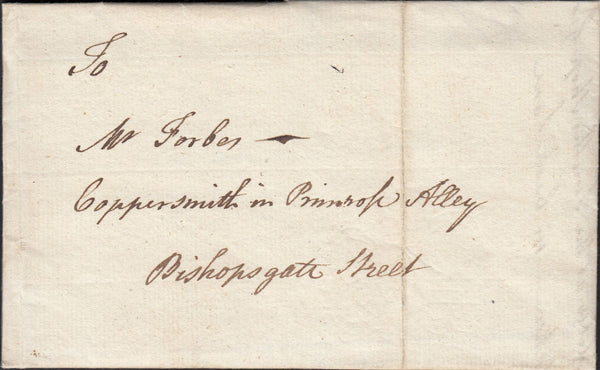 To
Mr Forbes
Coppersmith in Primrose Alley
Bishopsgate Street